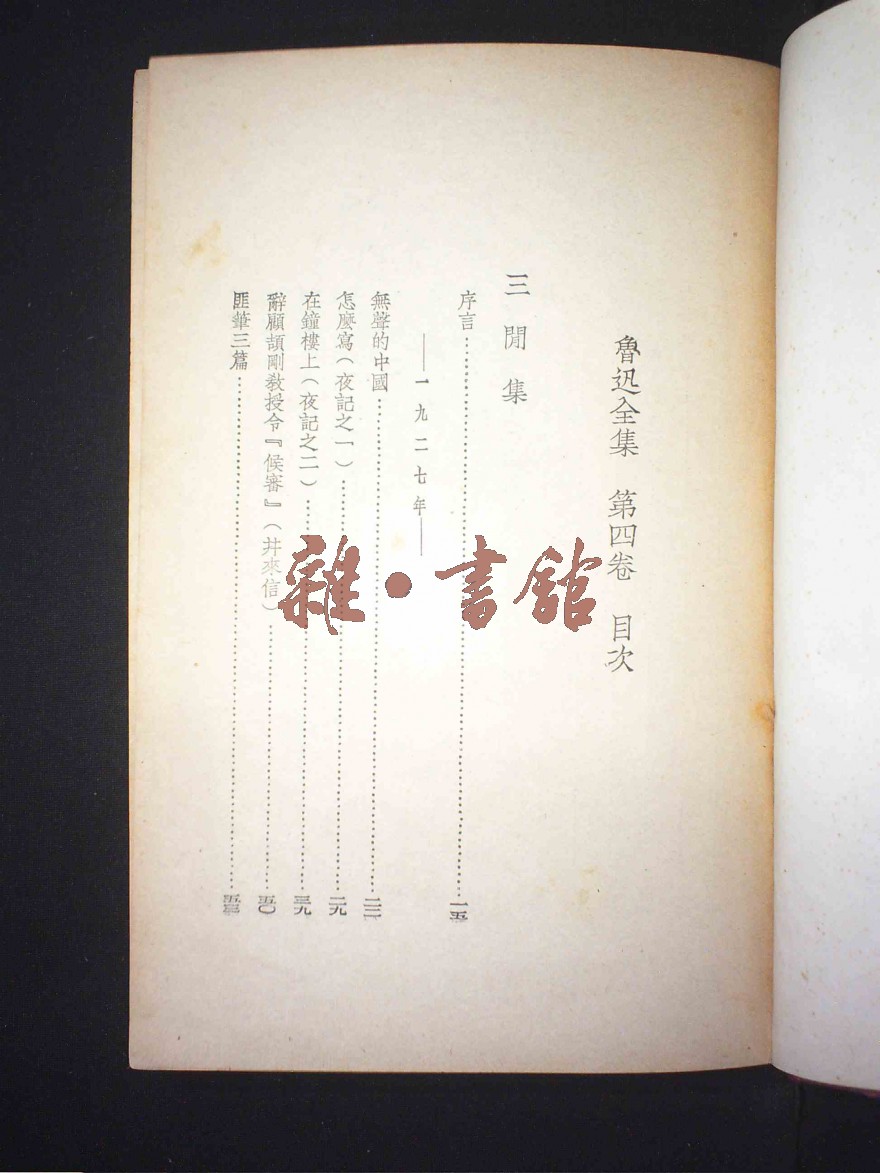 魯迅全集 第四卷 目次
三閒集
序言……一五
——一九二七年——
無聲的中國……二二
怎麼寫(夜記之一)……二九
在鐘樓上(夜記之二)……三九
辭顧頡剛教授令『候審』(并來信)……五〇
匪筆三篇……五三
雜•書館